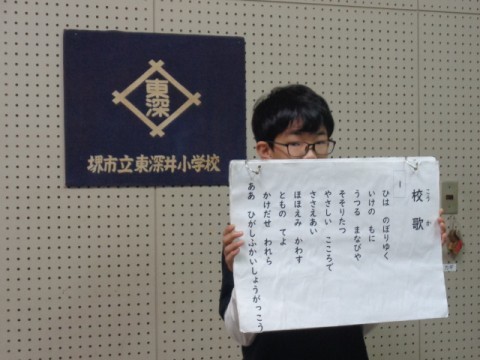 東深
堺市立東深井小学校
こう か
校歌
一
ひは のぼりゆく
いけの もに
うつる まなびや
そそりたつ
やさしい こころで
ささえあい
ほほえみ かわす
ともの てよ
かけだせ われら
ああ ひがしふかいしょうがっこう